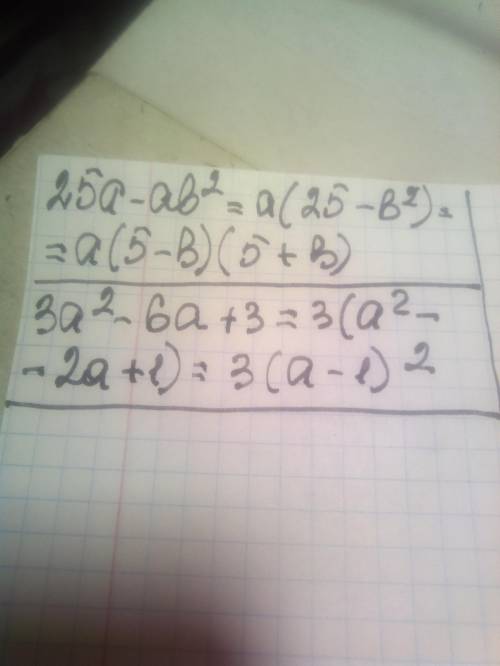 25a - ab² = a(25 - b²) =
= a(5 - b)(5 + b)
3a² - 6a + 3 = 3(a² -
- 2a + 1) = 3(a - 1)²